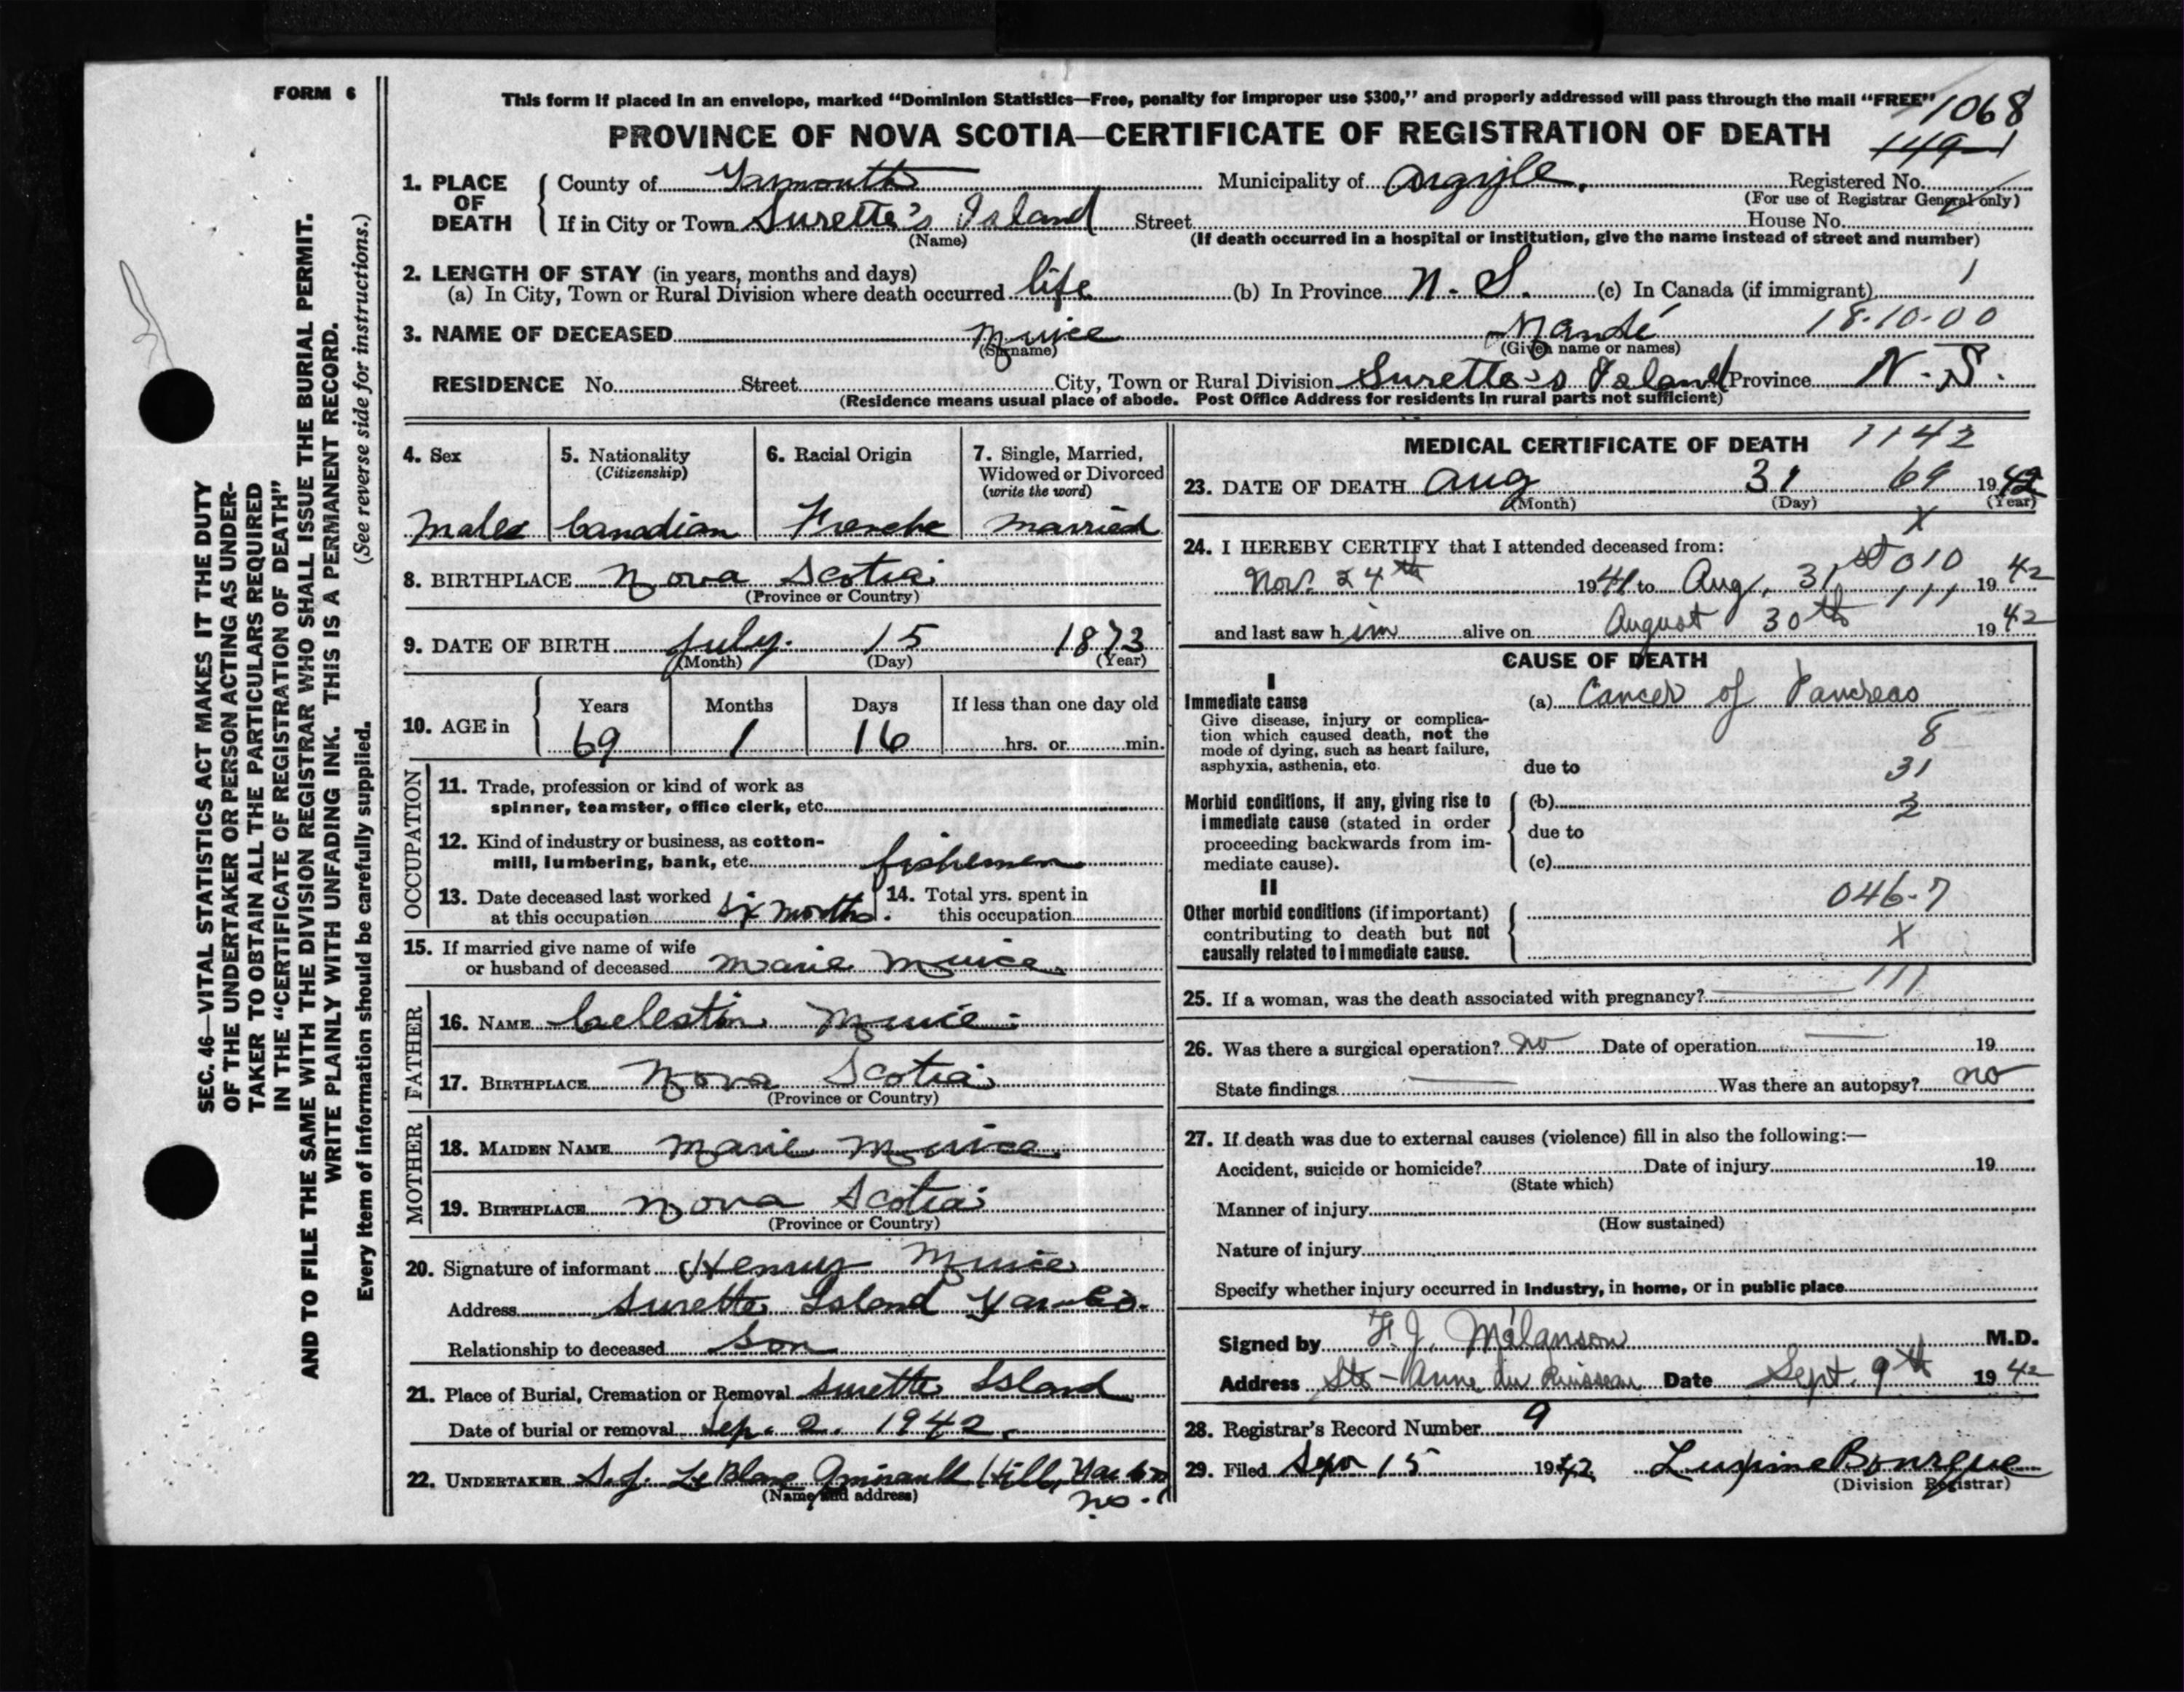 FORM 6
This form if placed in an envelope, marked “Dominion Statistics—Free, penalty for improper use $300,” and properly addressed will pass through the mail “FREE”
1068
PROVINCE OF NOVA SCOTIA—CERTIFICATE OF REGISTRATION OF DEATH
1. PLACE OF DEATH
County of Yarmouth Municipality of Argyle. Registered No.
(For use of Registrar General only)
If in City or Town Surette's Island Street House No.
(Name)
(If death occurred in a hospital or institution, give the name instead of street and number)
2. LENGTH OF STAY (in years, months and days)
(a) In City, Town or Rural Division where death occurred life (b) In Province N. S. (c) In Canada (if immigrant) 1
3. NAME OF DECEASED Muise Mandé 18-10-00
(Surname) (Given name or names)
RESIDENCE No. Street City, Town or Rural Division Surette's Island Province N. S.
(Residence means usual place of abode. Post Office Address for residents in rural parts not sufficient)
4. Sex
Male
5. Nationality
(Citizenship)
Canadian
6. Racial Origin
French
7. Single, Married,
Widowed or Divorced
(write the word)
Married
8. BIRTHPLACE Nova Scotia
(Province or Country)
9. DATE OF BIRTH July. 15 1873
(Month) (Day) (Year)
10. AGE in
Years Months Days If less than one day old
69 1 16 hrs. or min.
OCCUPATION
11. Trade, profession or kind of work as
spinner, teamster, office clerk, etc.
12. Kind of industry or business, as cotton-
mill, lumbering, bank, etc. fishermen
13. Date deceased last worked
at this occupation six months.
14. Total yrs. spent in
this occupation
15. If married give name of wife
or husband of deceased Marie Muise
FATHER
16. NAME Celestin Muise
17. BIRTHPLACE Nova Scotia
(Province or Country)
MOTHER
18. MAIDEN NAME Marie Muise
19. BIRTHPLACE Nova Scotia
(Province or Country)
20. Signature of informant Henry Muise
Address Surette Island Yar Co.
Relationship to deceased Son
21. Place of Burial, Cremation or Removal Surette Island
Date of burial or removal Sep. 2. 1942
22. UNDERTAKER S. J. LeBlanc Amirault Hill, Yar Co
N.S.
(Name and address)
MEDICAL CERTIFICATE OF DEATH 1142
23. DATE OF DEATH Aug 31 69 1942
(Month) (Day) (Year)
X
24. I HEREBY CERTIFY that I attended deceased from:
010
Nov. 24th 1941 to Aug. 31st 1942
111
and last saw him alive on August 30th 1942
CAUSE OF DEATH
I
Immediate cause
Give disease, injury or complica-
tion which caused death, not the
mode of dying, such as heart failure,
asphyxia, asthenia, etc.
(a) Cancer of Pancreas
8
due to 31
Morbid conditions, if any, giving rise to
immediate cause (stated in order
proceeding backwards from im-
mediate cause).
(b)
due to
(c)
II
Other morbid conditions (if important)
contributing to death but not
causally related to immediate cause.
046-7
X
111
25. If a woman, was the death associated with pregnancy?
26. Was there a surgical operation? no Date of operation 19
State findings Was there an autopsy? no
27. If death was due to external causes (violence) fill in also the following:—
Accident, suicide or homicide? Date of injury 19
(State which)
Manner of injury
(How sustained)
Nature of injury
Specify whether injury occurred in industry, in home, or in public place
Signed by F. J. Melanson M.D.
Address Ste-Anne du Ruisseau Date Sept. 9th 1942
28. Registrar's Record Number 9
29. Filed Sep 15 1942 Bourque
(Division Registrar)
SEC. 46—VITAL STATISTICS ACT MAKES IT THE DUTY
OF THE UNDERTAKER OR PERSON ACTING AS UNDER-
TAKER TO OBTAIN ALL THE PARTICULARS REQUIRED
IN THE “CERTIFICATE OF REGISTRATION OF DEATH”
AND TO FILE THE SAME WITH THE DIVISION REGISTRAR WHO SHALL ISSUE THE BURIAL PERMIT.
WRITE PLAINLY WITH UNFADING INK. THIS IS A PERMANENT RECORD.
Every item of information should be carefully supplied. (See reverse side for instructions.)